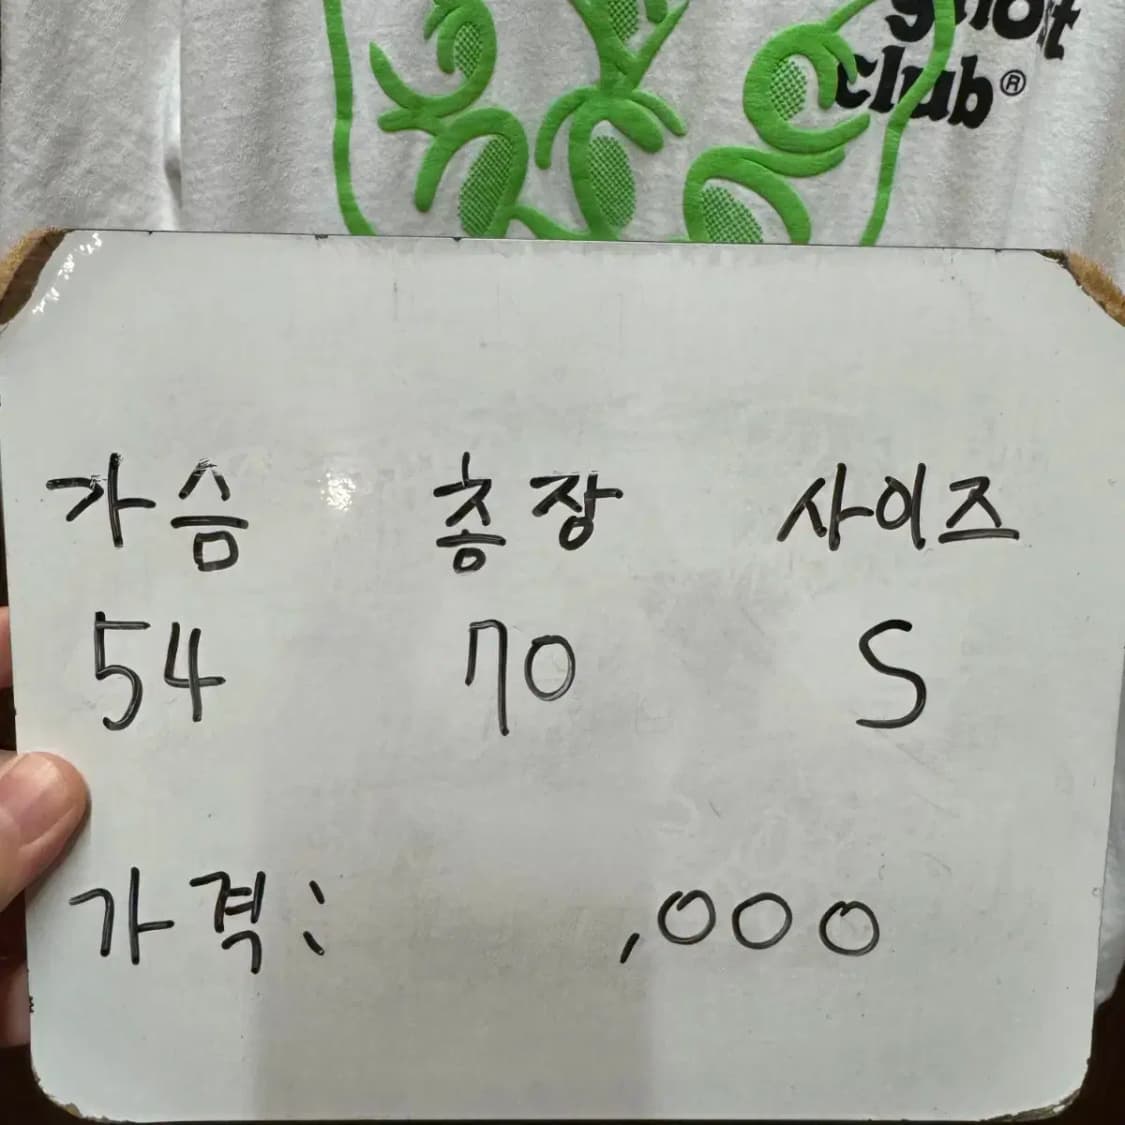 club®
가슴 총장 사이즈
54 70 S
가격: ,000